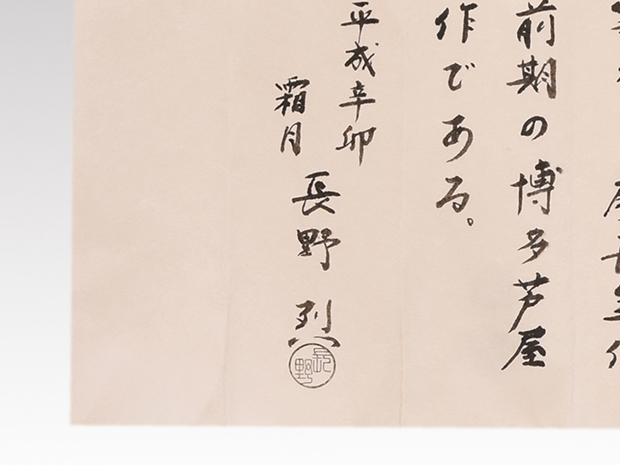 前期の博多芦屋
作である。
平成辛卯
霜月
長野 烈
長野